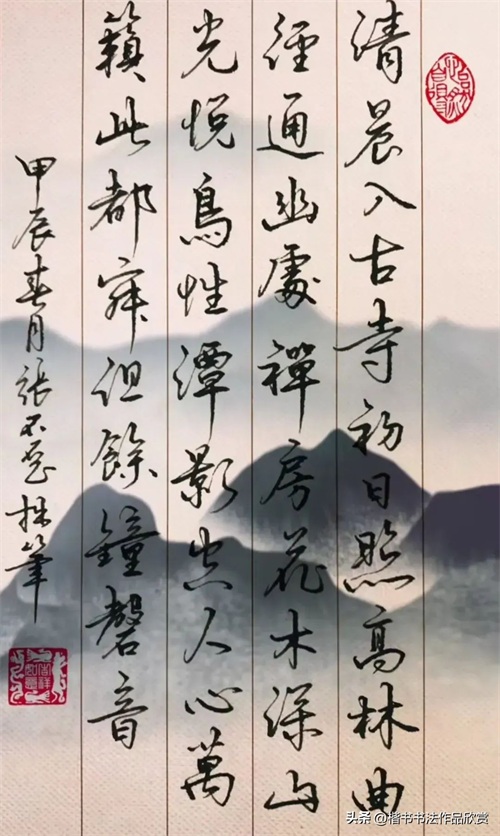 清晨入古寺初日照高林曲
徑通幽處禪房花木深山
光悦鳥性潭影空人心萬
籟此都寂但餘鐘磬音
甲辰春月張不拙筆
头条 @楷书书法作品欣赏